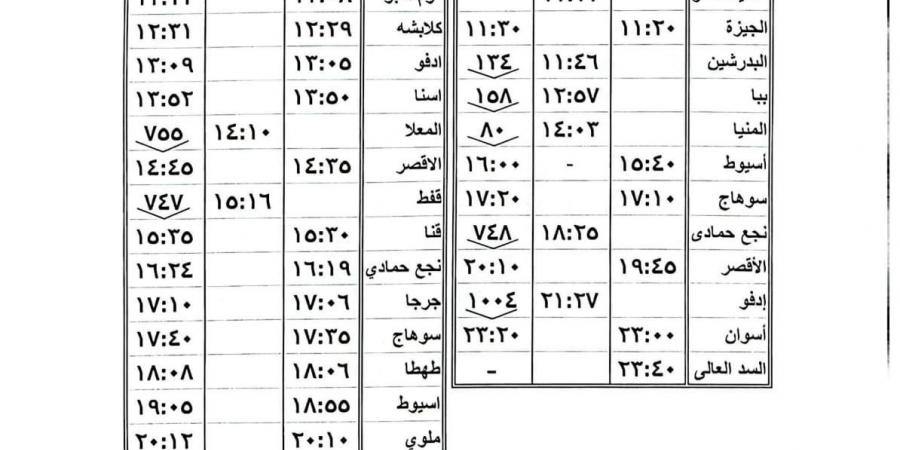 الجيزة ١١:٢٠ ١١:٣٠
البدرشين ١١:٤٦ ١٣٤
ببا ١٢:٥٧ ١٥٨
المنيا ١٤:٠٣ ٨٠
أسيوط ١٥:٤٠ - ١٦:٠٠
سوهاج ١٧:١٠ ١٧:٢٠
نجع حمادى ١٨:٢٥ ٧٤٨
الأقصر ١٩:٤٥ ٢٠:١٠
إدفو ٢١:٢٧ ١٠٠٤
أسوان ٢٣:٠٠ ٢٣:٢٠
السد العالى ٢٣:٤٠ -
كلابشه ١٢:٢٩ ١٢:٣١
ادفو ١٣:٠٥ ١٣:٠٩
اسنا ١٣:٥٠ ١٣:٥٢
المعلا ١٤:١٠ ٧٥٥
الاقصر ١٤:٣٥ ١٤:٤٥
قفط ١٥:١٦ ٧٤٧
قنا ١٥:٣٠ ١٥:٣٥
نجع حمادي ١٦:١٩ ١٦:٢٤
جرجا ١٧:٠٦ ١٧:١٠
سوهاج ١٧:٣٥ ١٧:٤٠
طهطا ١٨:٠٦ ١٨:٠٨
اسيوط ١٨:٥٥ ١٩:٠٥
ملوي ٢٠:١٠ ٢٠:١٢